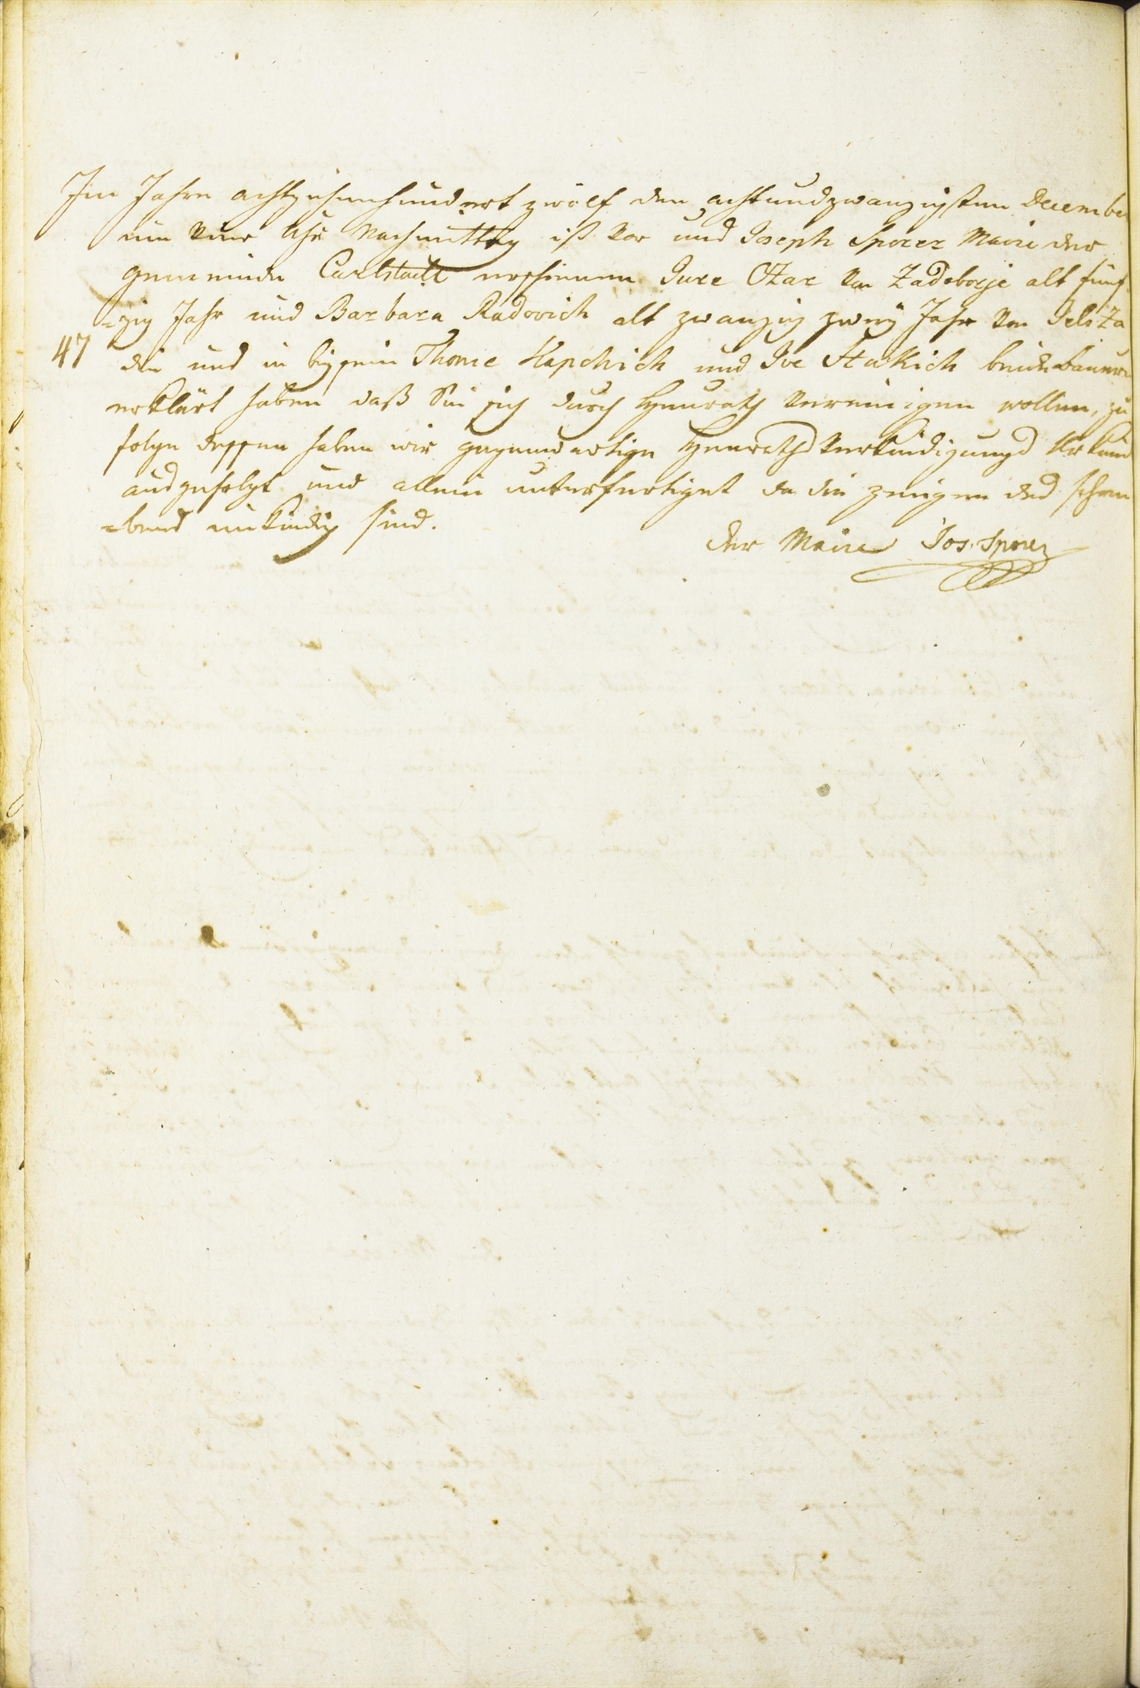 Im Jahre achtzehenhundert zwölf den achtundzwanzigsten December
um vier Uhr Nachmittag ist vor uns Joseph Sporer Maire der
gemeinde Carlstadt erschienen Jure Ozar von Zadoborje alt fünf
=zig Jahr und Barbara Radovich alt zwanzig zwey Jahr von JelsZa
47 die uns in beysein Thome Kapchich und Ive Stakich beide bauern
erklärt haben daß Sie sich durch Heurath vereinigen wollen, zu
folge dessen haben wir gegenwertige Heuraths verkündigungs Urkund
ausgefolgt und allein unterfertiget da die zeugen des schrei
=bens unkündig sind.
der Maire Jos. Sporer